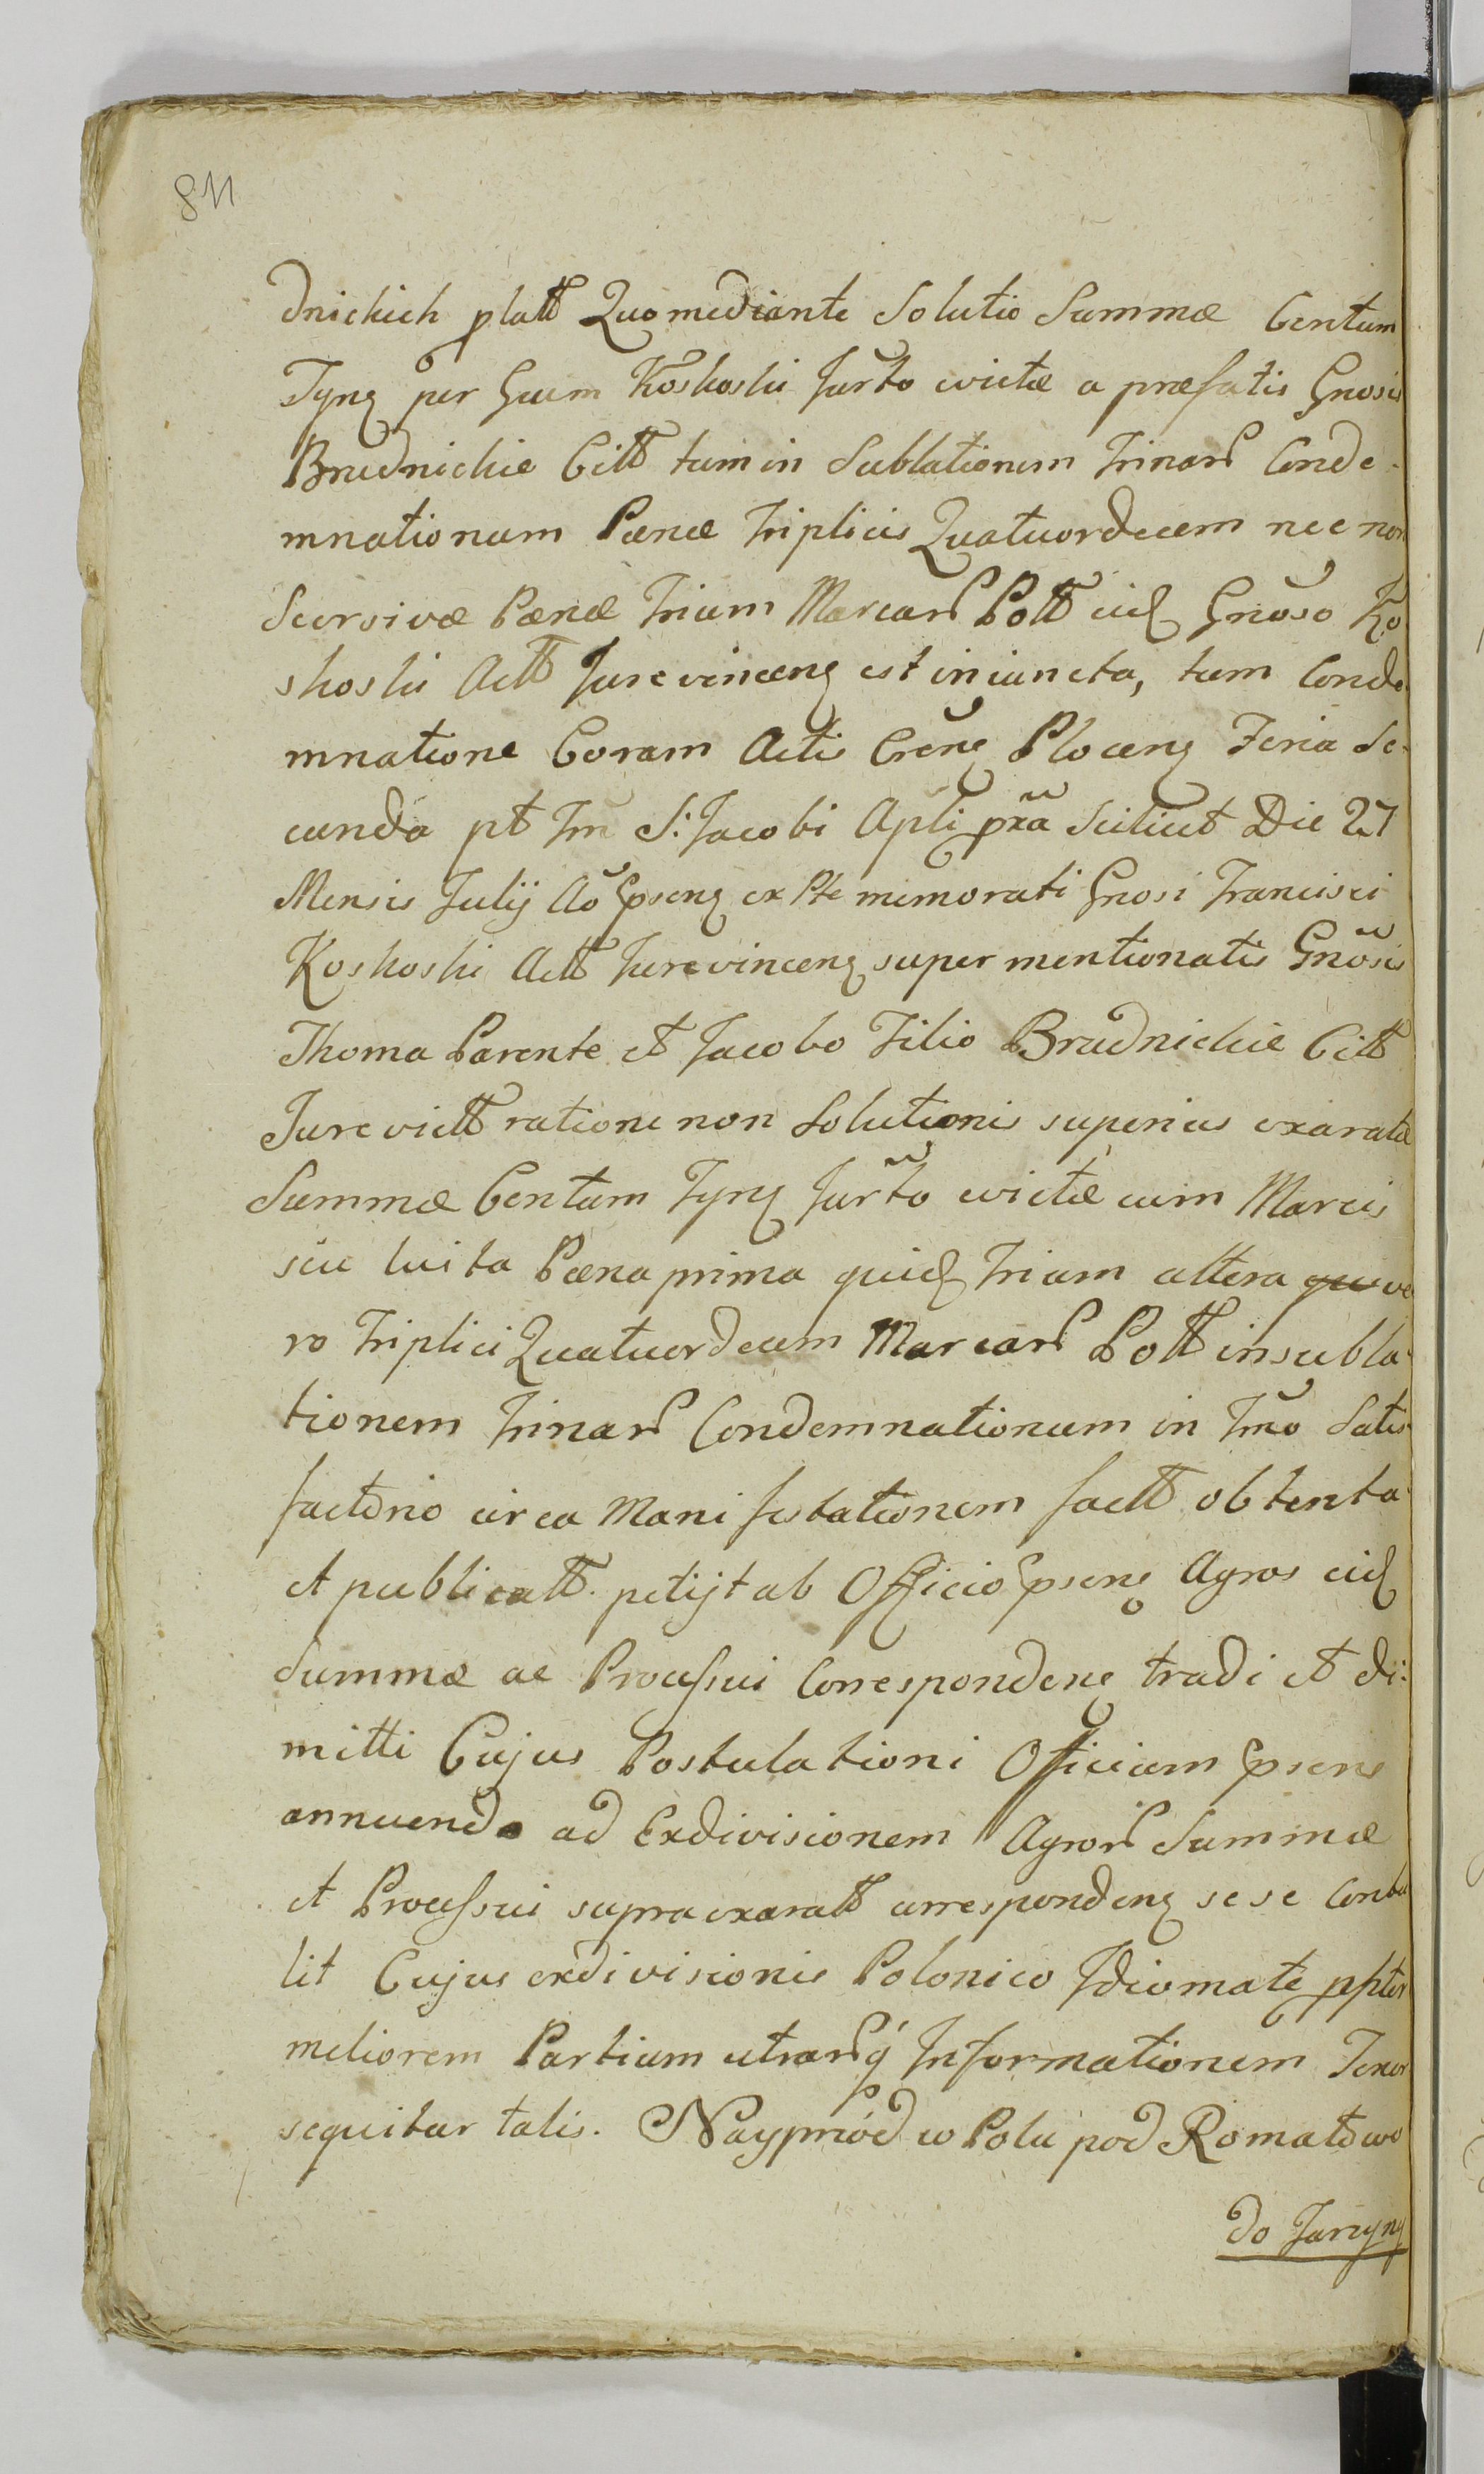 811
dnickich platt Quo mediante Solutio Summæ Centum
Tynẽ per Gsum Koskoski Jurto evictæ a præfatis Gnosis
Brudnickie Citt tum in Sublationem trinarũ Conde-
mnationum Pænæ triplicis Quatuordecem nec non
Seorsivæ Pænæ trium Marcarũ Poll eid Gnõso Ko
skoski Actt Jurevinceng est iniuncta, tum Conde
mnatione Coram Actis Creng Ploceng Feria Se-
cunda pt Fm S: Jacobi Apli pxã Scilicet Die 27
Mensis Julij Aõ Ipseng ex Pte memorati Gnosi Francisci
Koskoski Actt Jurevinceng super mentionatis Gnõsis
Thoma Parente et Jacobo Filio Brudnickie Citt
Jurevictt ratione non Solutionis superius exaratæ
Summæ Centum Tynẽ Jurto evictæ cum Marcis
seu luita Pæna prima quid trium altera ve
ro triplici Quatuordecem Marcarũ Poll in subla-
tionem trinarũ Condemnationum in Tmo Satis
factorio circa Manifestationem factt obtenta
et publicatt. petijt ab Officio Ipseng Agros eid
Summæ ac Processui Correspondeng tradi et di:
mitti Cujus Postulationi Officium Ipsens
annuendo ad Exdivisionem Agrorũ Summæ
et Processui supra exaratt correspondeng sese Contu
lit Cujus exdivisionis Polonico Idiomate ppter
meliorem Partium utrarũq́ Informationem Tenor
sequitur talis. Nayprzód w Polu pod Romatowo
do Jarzyny